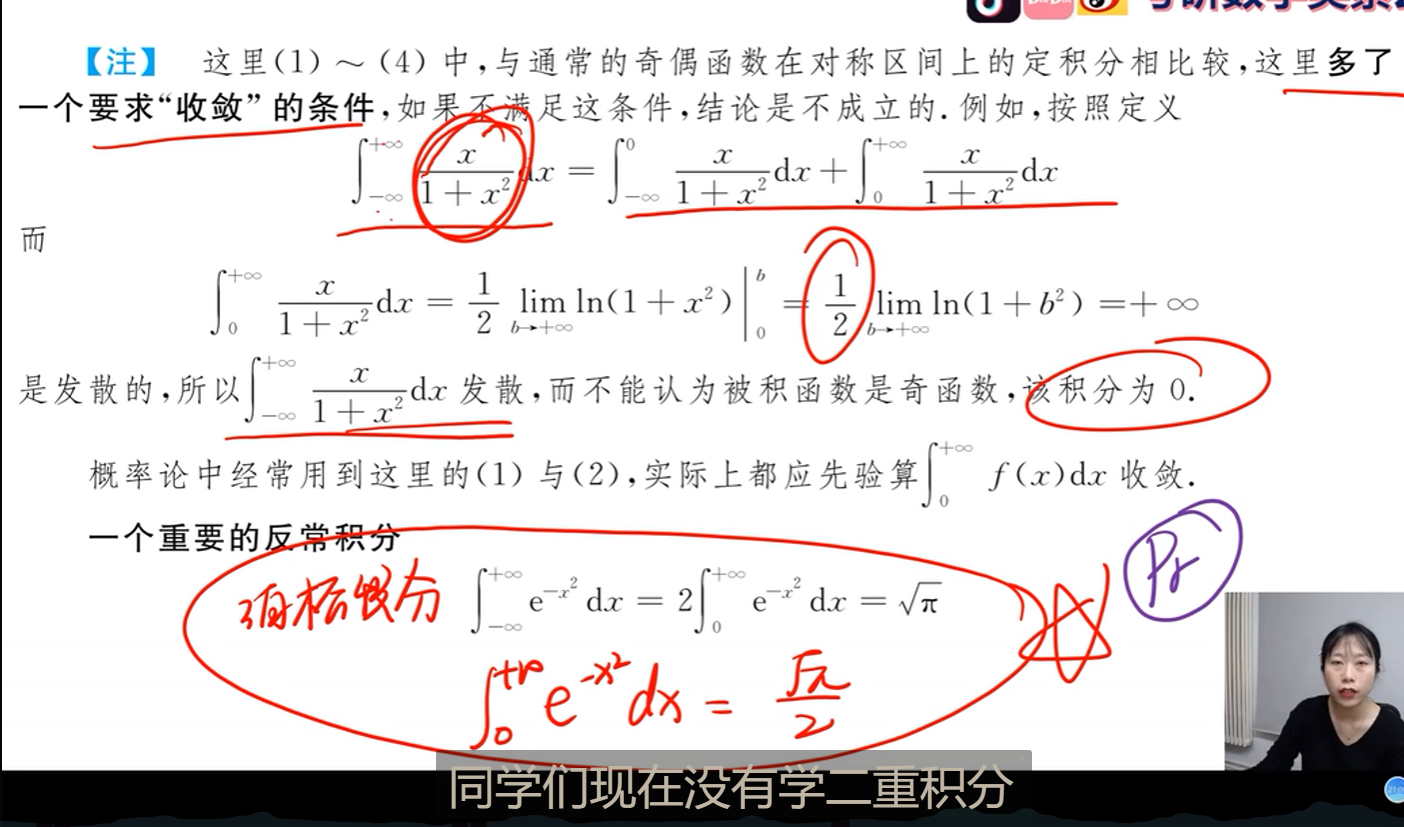 【注】 这里(1)～(4)中,与通常的奇偶函数在对称区间上的定积分相比较,这里多了
一个要求“收敛”的条件,如果不满足这条件,结论是不成立的.例如,按照定义
∫_{-∞}^{+∞} x/(1+x²) dx = ∫_{-∞}^{0} x/(1+x²) dx + ∫_{0}^{+∞} x/(1+x²) dx
而
∫_{0}^{+∞} x/(1+x²) dx = 1/2 lim_{b→+∞} ln(1+x²)|_{0}^{b} = 1/2 lim_{b→+∞} ln(1+b²) =+∞
是发散的,所以∫_{-∞}^{+∞} x/(1+x²) dx 发散,而不能认为被积函数是奇函数,该积分为 0.
概率论中经常用到这里的(1)与(2),实际上都应先验算∫_{0}^{+∞} f(x)dx 收敛.
一个重要的反常积分
∫_{-∞}^{+∞} e^{-x²} dx = 2∫_{0}^{+∞} e^{-x²} dx = √π
∫_{0}^{+∞} e^{-x²} dx = √π/2
同学们现在没有学二重积分